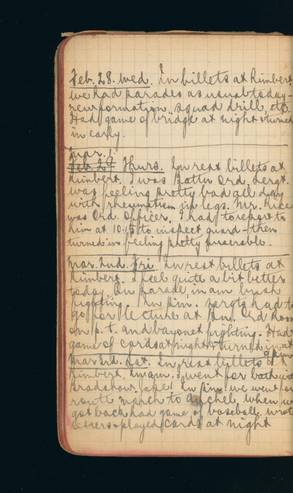 Feb. 28. Wed. In billets at Rimbert
we had parades as usual today -
new formation. squad drill, etc.
Had game of bridge at night turned
in early.
Mar. 1.
Feb. 29 Thurs. In rest billets at
Rimbert. I was Batln Ord. Sergt.
was feeling pretty bad all day
with rheumatism in legs. Mr.
was Ord. Officer. I had to report to
him at 10.15 to inspect guard - then
turned in feeling pretty miserable.
Mar. 2nd. Fri. In rest billets at
Rimbert. I feel quite a bit better
today. On parade in am.
fighting. In p.m. sergts had to
go for lecture at
on p.t. and bayonet fighting. Had
game of cards at night & turned in at
Mar 3rd. Sat. In rest billets at
Rimbert. In am. went for bath
In p.m. we went for
route march to Auchel, when we
got back had game of baseball. wrote
letters & played cards at night